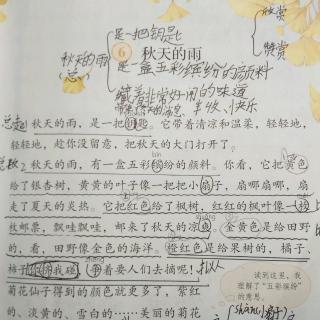 欣赏
赞赏
是一把钥匙
秋天的雨
(总)
6 秋天的雨
是一盒五彩缤纷的颜料
藏着非常好闻的气味
丰收、快乐
总起
秋天的雨，是一把钥匙。它带着清凉和温柔，轻轻地，
轻轻地，趁你没留意，把秋天的大门打开了。
bīn
秋天的雨，有一盒五彩缤纷的颜料。你看，它把黄色
给了银杏树，黄黄的叶子像一把把小扇子，扇哪扇哪，扇
走了夏天的炎热。它把红色给了枫树，红红的枫叶像一枚
枚邮票，飘哇飘哇，邮来了秋天的凉爽。金黄色是给田野
的，看，田野像金色的海洋。橙红色是给果树的，橘子、
柿子你挤我碰，争着要人们去摘呢！拟人
菊花仙子得到的颜色就更多了，紫红
的、淡黄的、雪白的……美丽的菊花
读到这里，我
理解了“五彩缤纷”
的意思。